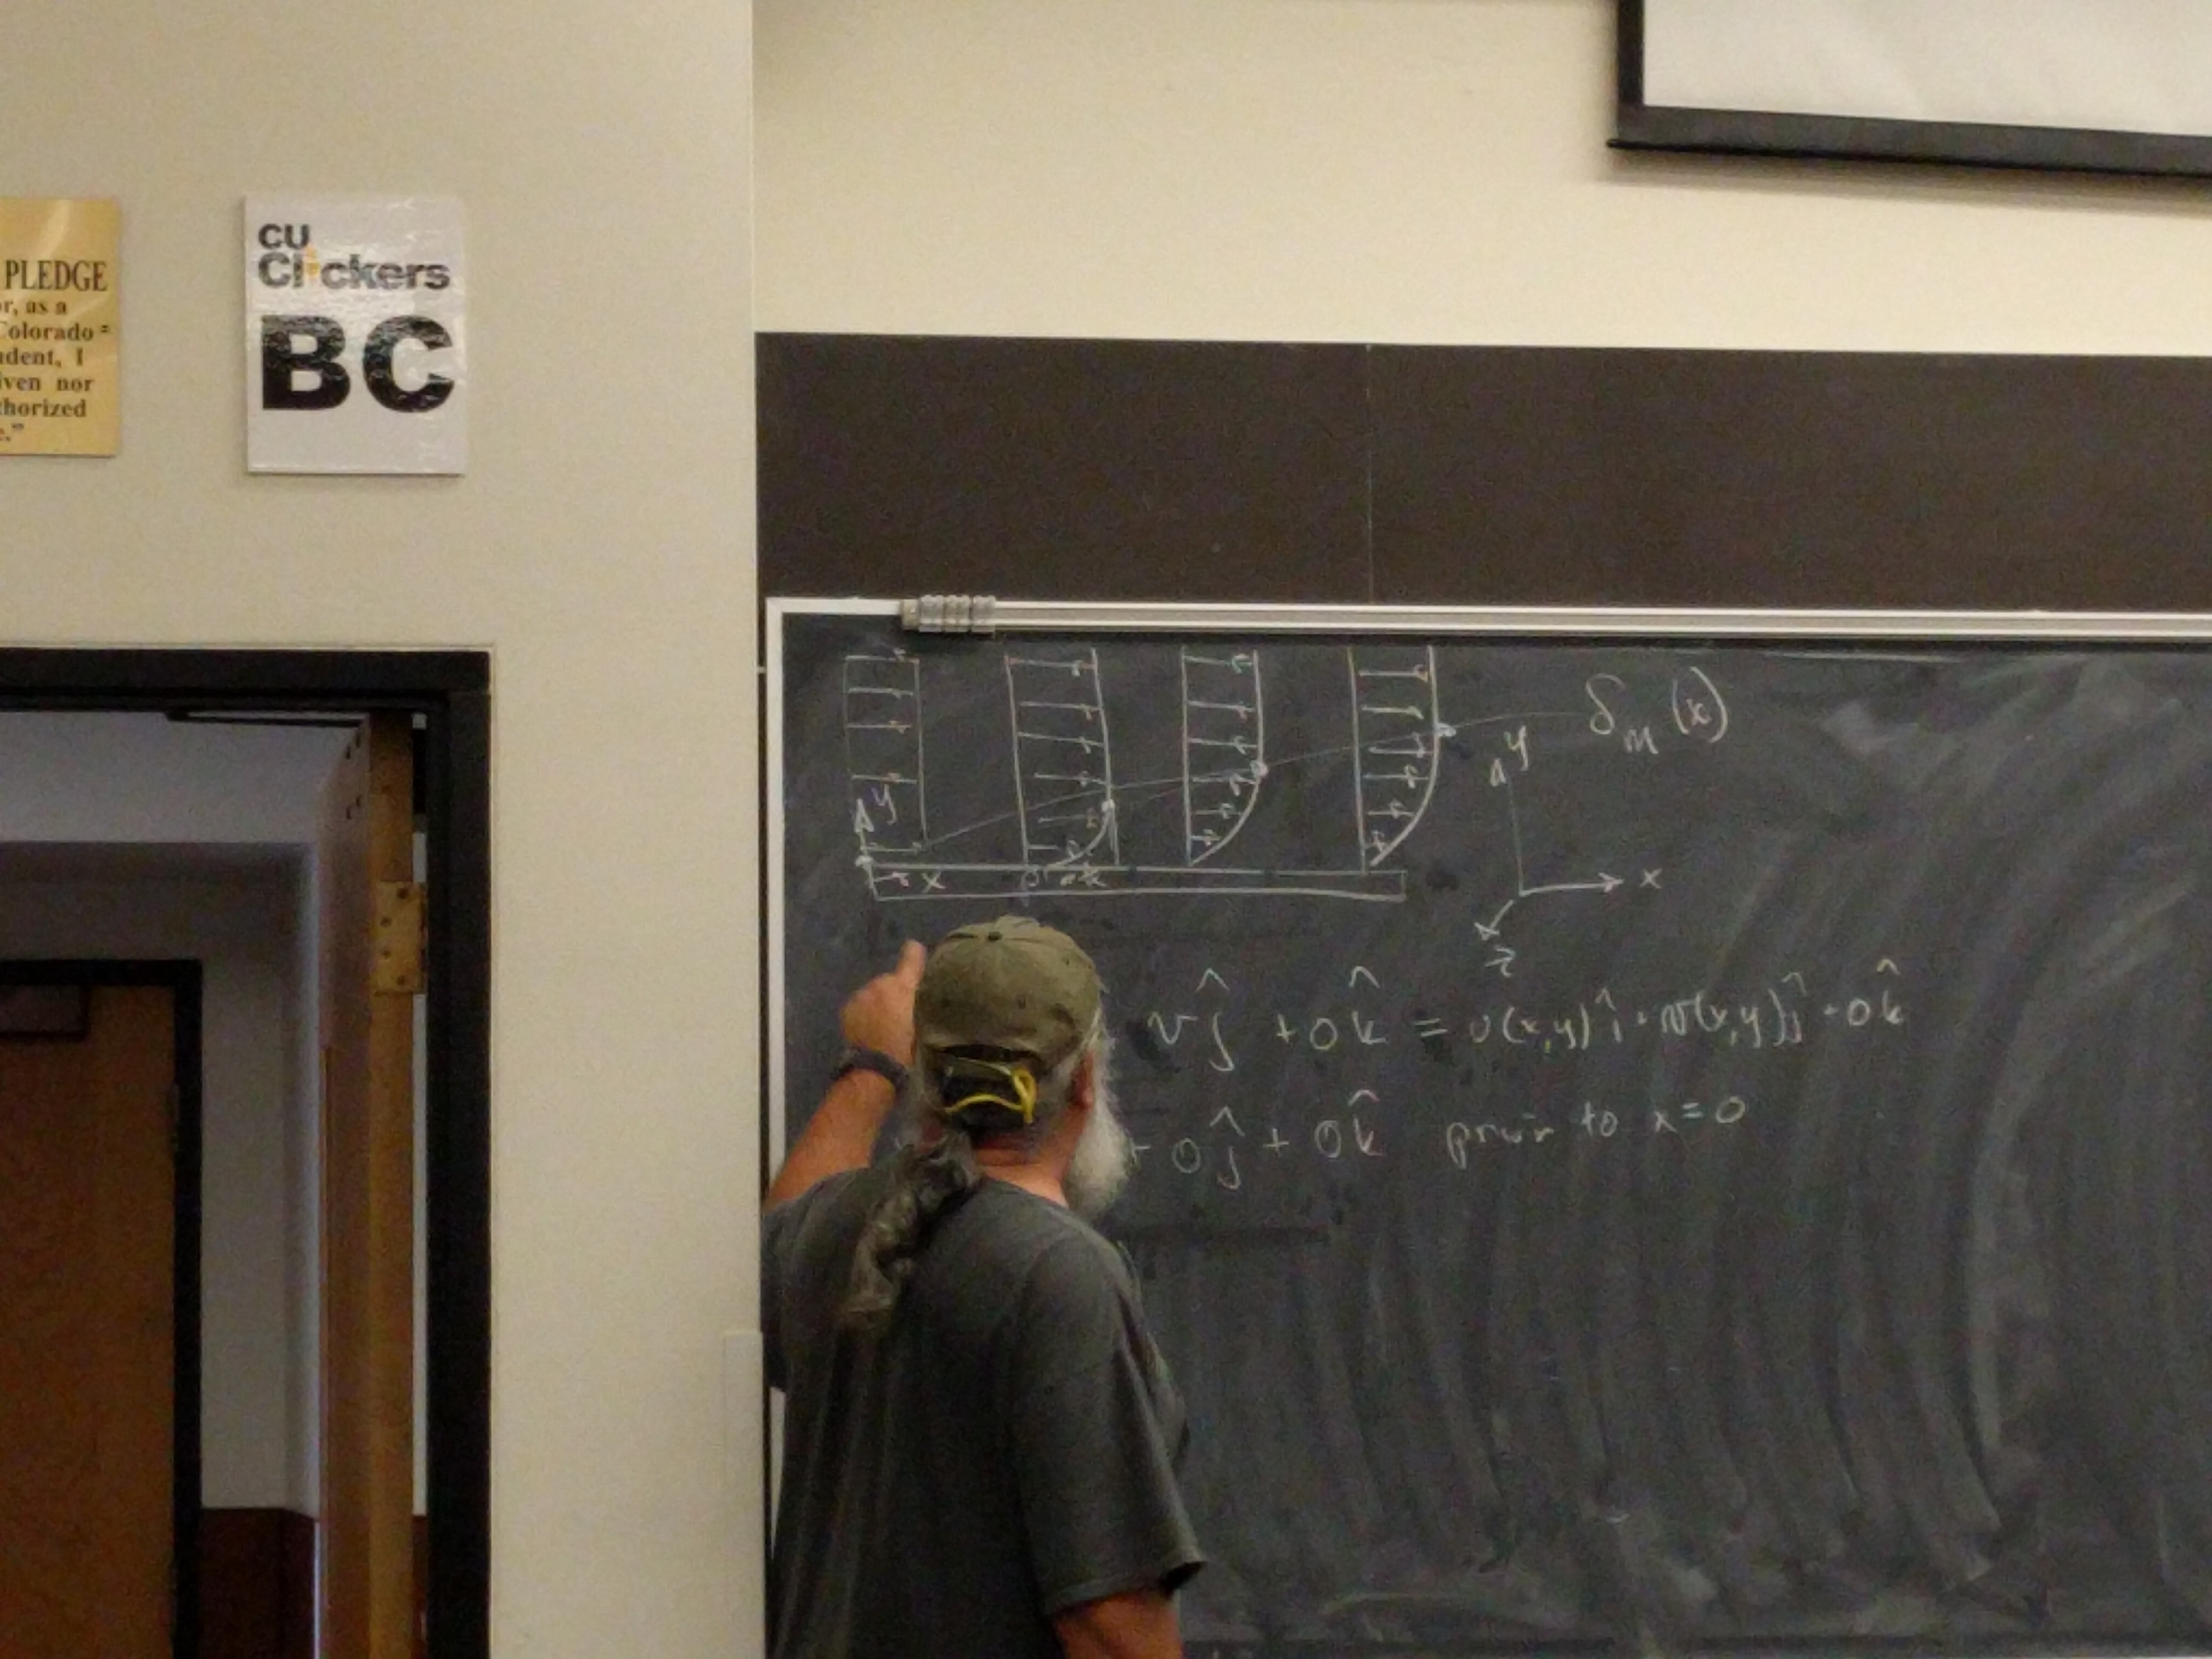 PLEDGE
or, as a
Colorado
udent, I
iven nor
thorized
e."
CU
Clickers
BC
δm(x)
y
x
y
x
z
v ĵ + 0 k̂ = u(x,y) î + v(x,y) ĵ + 0 k̂
+ 0 ĵ + 0 k̂ prior to x = 0